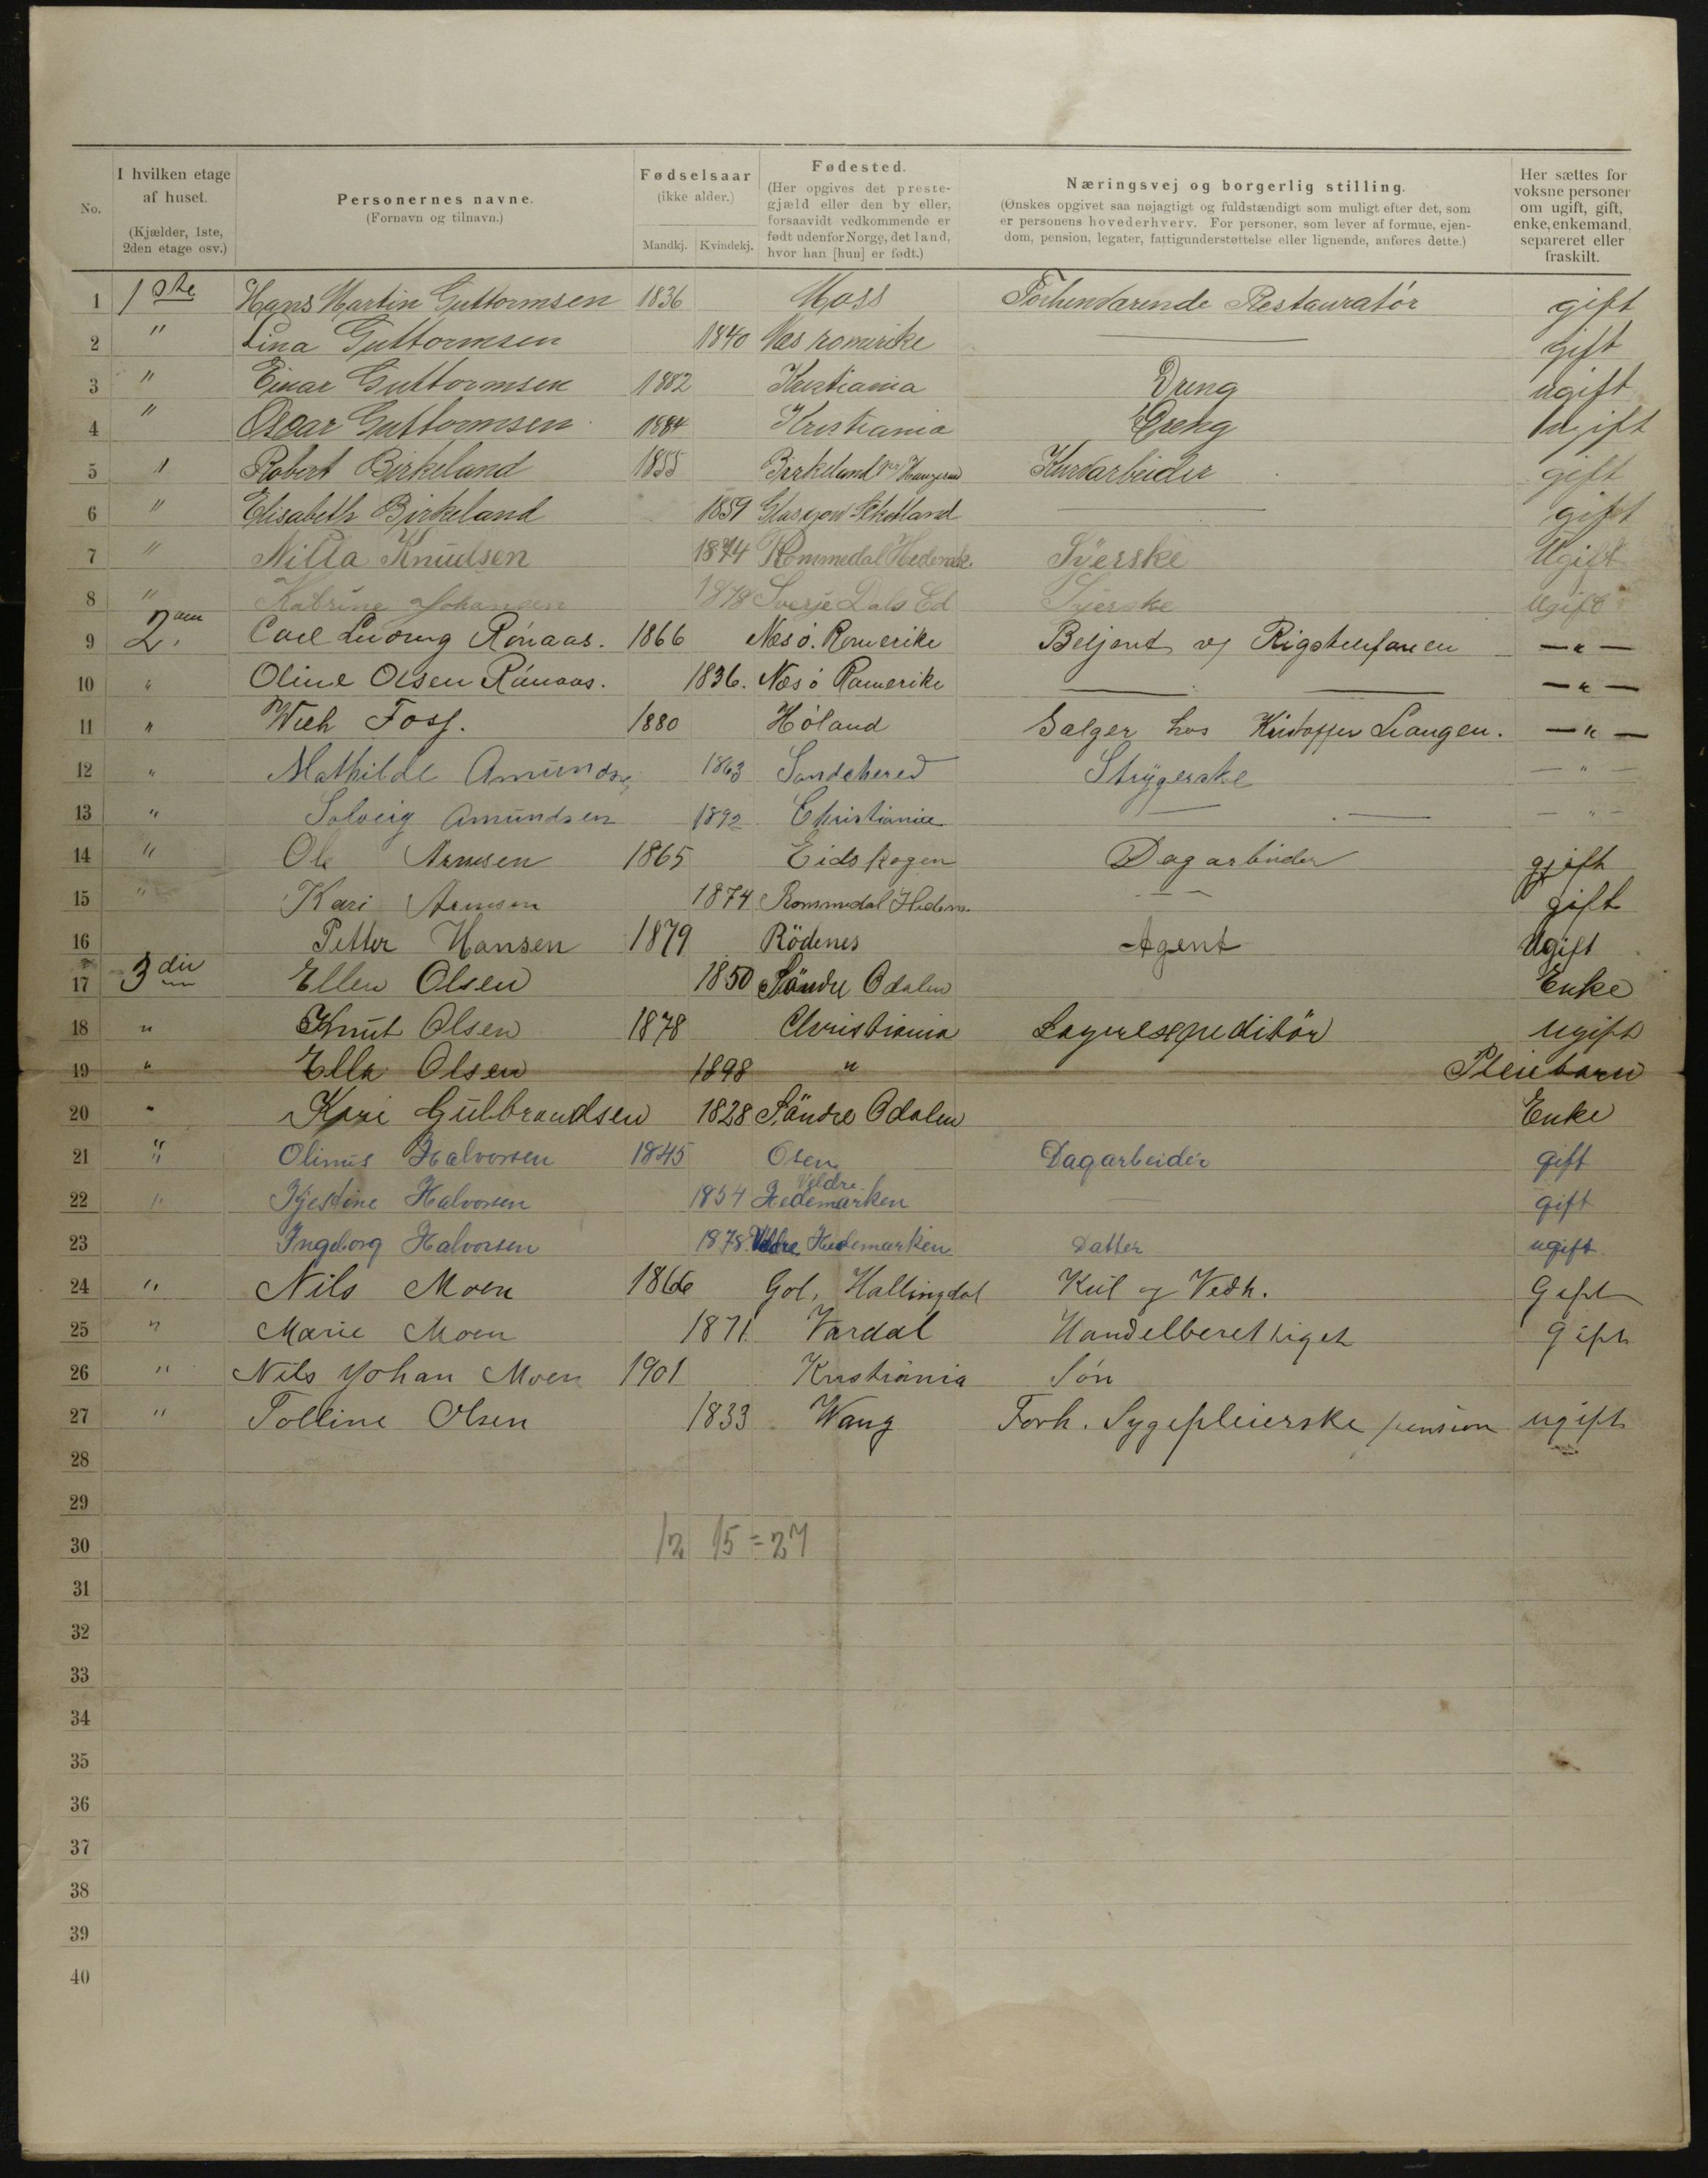 No.
I hvilken etage af huset.
(Kjælder, 1ste, 2den etage osv.)
Personernes navne.
(Fornavn og tilnavn.)
Fødselsaar
(ikke alder.)
Mandkj. Kvindekj.
Fødested.
(Her opgives det prestegjæld eller den by eller, forsaavidt vedkommende er født udenfor Norge, det land, hvor han [hun] er født.)
Næringsvej og borgerlig stilling.
(Ønskes opgivet saa nøjagtigt og fuldstændigt som muligt efter det, som er personens hovederhverv. For personer, som lever af formue, ejendom, pension, legater, fattigunderstøttelse eller lignende, anføres dette.)
Her sættes for voksne personer om ugift, gift, enke, enkemand, separeret eller fraskilt.
1 1ste Hans Martin Guttormsen 1836 Moss Restauratór gift
2 " Lina Guttormsen 1840 Næs romerike — gift
3 " Einar Guttormsen 1882 Kristiania Dreng ugift
4 " Oscar Guttormsen 1884 Kristiania Dreng Ugift
5 " Robert Birkeland 1855 Birkeland gift
6 " Elisabeth Birkeland 1859 Glasgow Skotland — gift
7 " Nilla Knudsen 1874 Rommedal Hedemk. Syerske Ugift
8 " Katrine Johansen 1878 Sverje Dals Ed Syerske Ugift
9 2. Carl Ludvig Rónaas. 1866 Nes ó. Romerike Betjent v/ Rigstelefonen — " —
10 " Oline Olsen Rónaas. 1836. Nes ó Romerike — — — " —
11 " Foss. 1880 Hóland Selger hos Kristoffer Langen. — " —
12 " Mathilde Amundsen 1863 Sandehered Strygerske — " —
13 " Solveig Amundsen 1892 Christiania — — — " —
14 " Ole Arnesen 1865 Eidskogen Dagarbeider gjift
15 " Kari Arnesen 1874 Rommedal Hedem. — — gift
16 Petter Hansen 1879 Rödenes Agent Ugift
17 3die Ellen Olsen 1850 Söndre Odalen Enke
18 " Knut Olsen 1878 Christiania Lagerexpeditör ugift
19 " Ella Olsen 1898 " Pleiebarn
20 " Kari Gulbrandsen 1828 Söndre Odalen Enke
21 " Olinus Halvorsen 1845 Osen Dagarbeider gift
22 " Kjestine Halvorsen 1854 Veldre Hedemarken gift
23 Ingeborg Halvorsen 1878. Veldre Hedemarken Datter ugift
24 " Nils Moen 1866 Gol, Hallingdal Kul og Vedh. Gift
25 " Marie Moen 1871 Vardal Handelberettiget Gift
26 " Nils Johan Moen 1901 Kristiania Són
27 " Tolline Olsen 1833 Wang Forh. Sygepleierske pension ugift
28
29
30 12 15 = 27
31
32
33
34
35
36
37
38
39
40